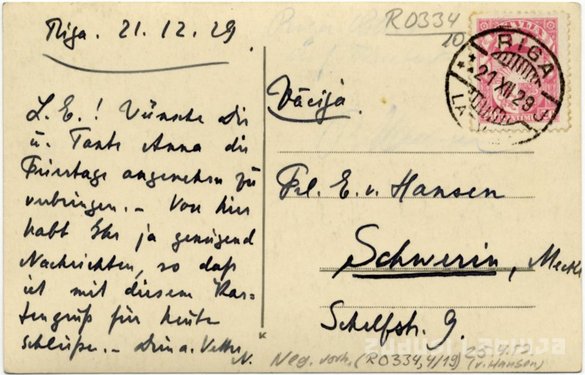 Riga. 21.12.29
R0334
10
RIGA
21 XII 29
L. E.! Wünsche Dir
u. Tante Anna die
Feiertage angenehm zu
verbringen. – Von hier
habt Ihr ja genügend
Nachrichten, so daß
ich mit diesem Kar-
tengruß für heute
schließe. –
Vācija.
Frl. E. v. Hansen
Schwerin, Meckl
Schelfstr. 9.
Neg. vorh. (R0334, 4/19)
(v. Hansen)
zudusi Latvija